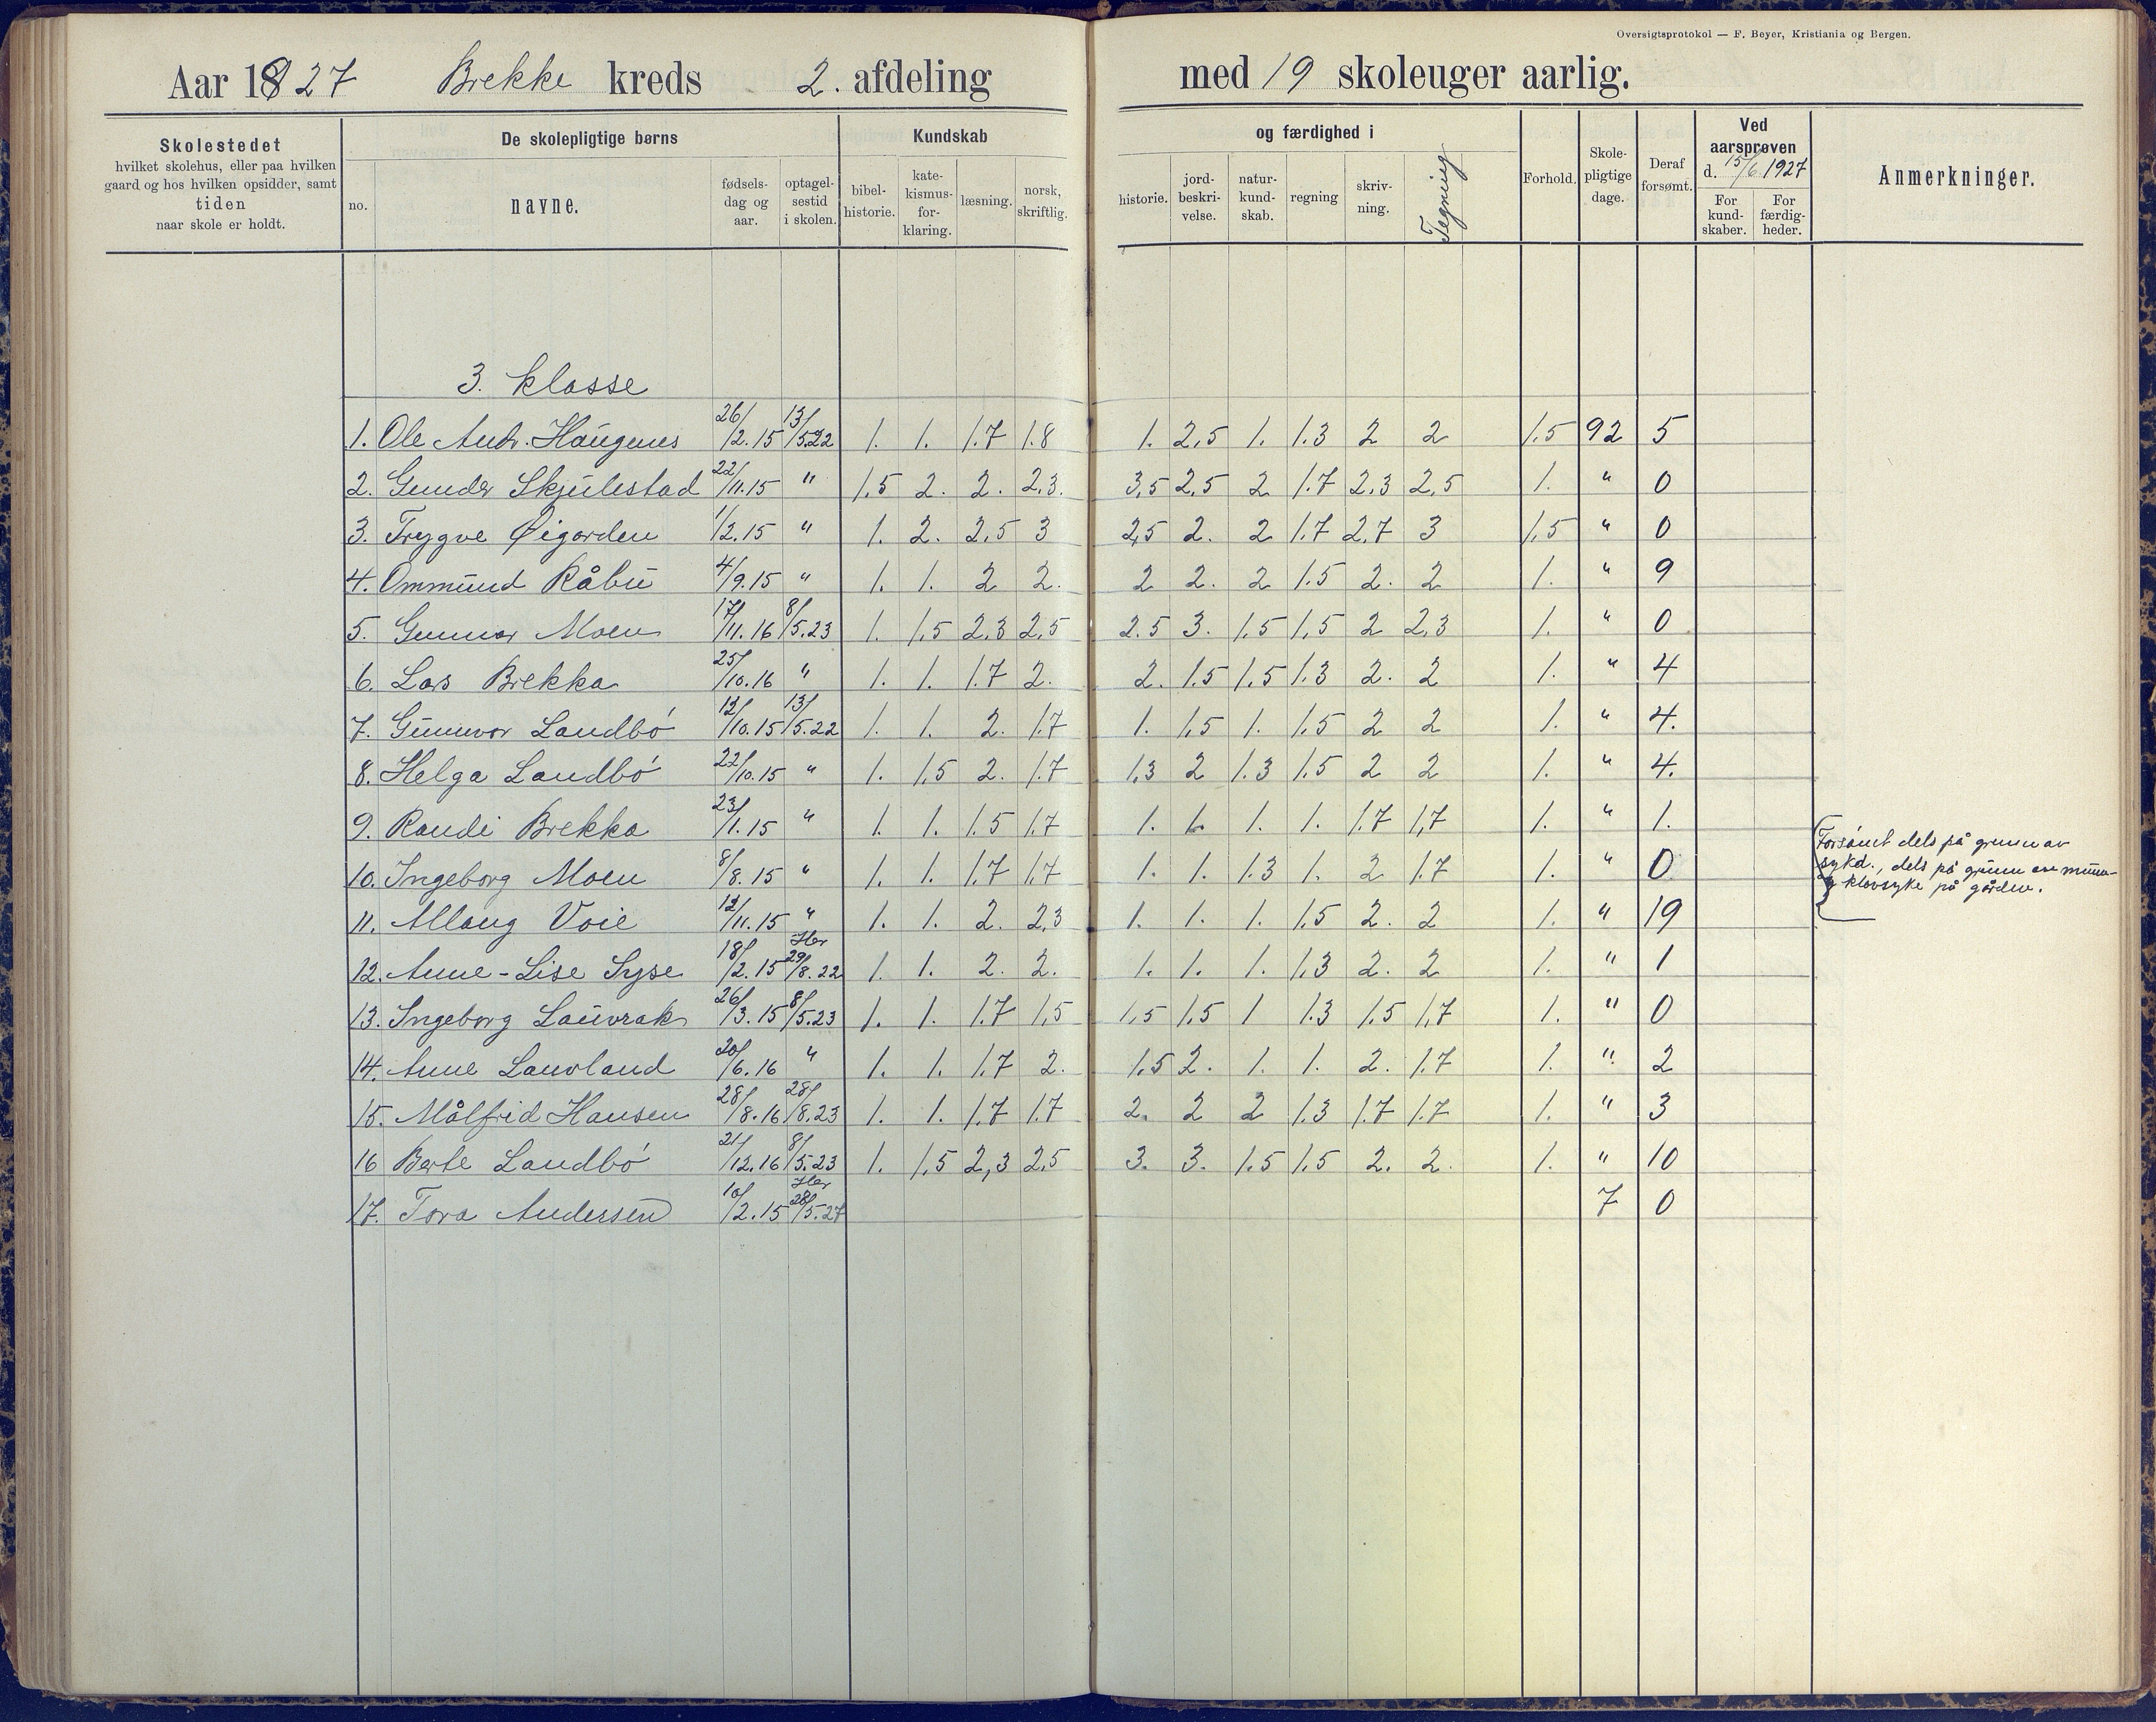 Oversigtsprotokol — F. Beyer, Kristiania og Bergen.
Aar 1927 Brekke kreds 2. afdeling med 19 skoleuger aarlig.
Skolestedet
hvilket skolehus, eller paa hvilken
gaard og hos hvilken opsidder, samt
tiden
naar skole er holdt.
De skolepligtige børns
no.
navne.
fødsels-
dag og
aar.
optagel-
sestid
i skolen.
Kundskab
bibel-
historie.
kate-
kismus-
for-
klaring.
læsning.
norsk,
skriftlig.
og færdighed i
historie.
jord-
beskri-
velse.
natur-
kund-
skab.
regning
skriv-
ning.
Tegning
Forhold.
Skole-
pligtige
dage.
Deraf
forsømt.
Ved
aarsprøven
d. 15/6 1927
For
kund-
skaber.
For
færdig-
heder.
Anmerkninger.
3. klasse
1. Ole Andr. Haugenes 26/2.15 13/5.22 1. 1. 1.7 1.8 1. 2,5 1. 1.3 2 2 1.5 92 5
2. Gunder Skjulestad 22/11.15 " 1,5 2. 2. 2,3. 3,5 2,5 2 1.7 2.3 2,5 1. " 0
3. Trygve Øigarden 1/2.15 " 1. 2. 2,5 3 2,5 2. 2 1.7 2.7 3 1,5 " 0
4. Ommund Råbu 4/9.15 " 1. 1. 2 2. 2 2. 2 1.5 2. 2 1. " 9
5. Gunnar Moen 17/11.16 8/5.23 1. 1,5 2,3 2,5 2.5 3. 1,5 1,5 2 2,3 1. " 0
6. Lars Brekka 25/10.16 " 1. 1. 1.7 2. 2. 1.5 1.5 1.3 2. 2 1. " 4
7. Gunnvor Landbö 12/10.15 13/5.22 1. 1. 2. 1.7 1. 1,5 1. 1.5 2 2 1. " 4.
8. Helga Landbö 22/10.15 " 1. 1,5 2. 1.7 1,3 2 1.3 1.5 2 2 1. " 4.
9. Randi Brekka 23/1.15 " 1. 1. 1.5 1.7 1. 1. 1. 1. 1.7 1,7 1. " 1.
10. Ingeborg Moen 8/8.15 " 1. 1. 1.7 1.7 1. 1. 1.3 1. 2 1.7 1. " 0
Forsömt dels på grunn av
sykd., dels på grunn av munn-
og klovsyke på gården.
11. Allaug Voie 12/11.15 " 1. 1. 2. 2,3 1. 1. 1. 1.5 2. 2 1. " 19
12. Anne-Lise Syse 18/2.15 Her 29/8.22 1. 1. 2. 2. 1. 1. 1. 1.3 2. 2 1. " 1
13. Ingeborg Lauvrak 26/3.15 8/5.23 1. 1. 1.7 1,5 1,5 1,5 1 1.3 1.5 1,7 1. " 0
14. Anne Lauvland 20/6.16 " 1. 1. 1.7 2. 1.5 2. 1. 1. 2. 1.7 1. " 2
15. Målfrid Hansen 28/8.16 28/8.23 1. 1. 1.7 1.7 2. 2 2 1.3 1.7 1.7 1. " 3
16 Berte Landbö 21/12.16 8/5.23 1. 1,5 2,3 2.5 3. 3. 1.5 1.5 2. 2. 1. " 10
17. Tora Andersen 10/2.15 Her 28/5.27 7 0